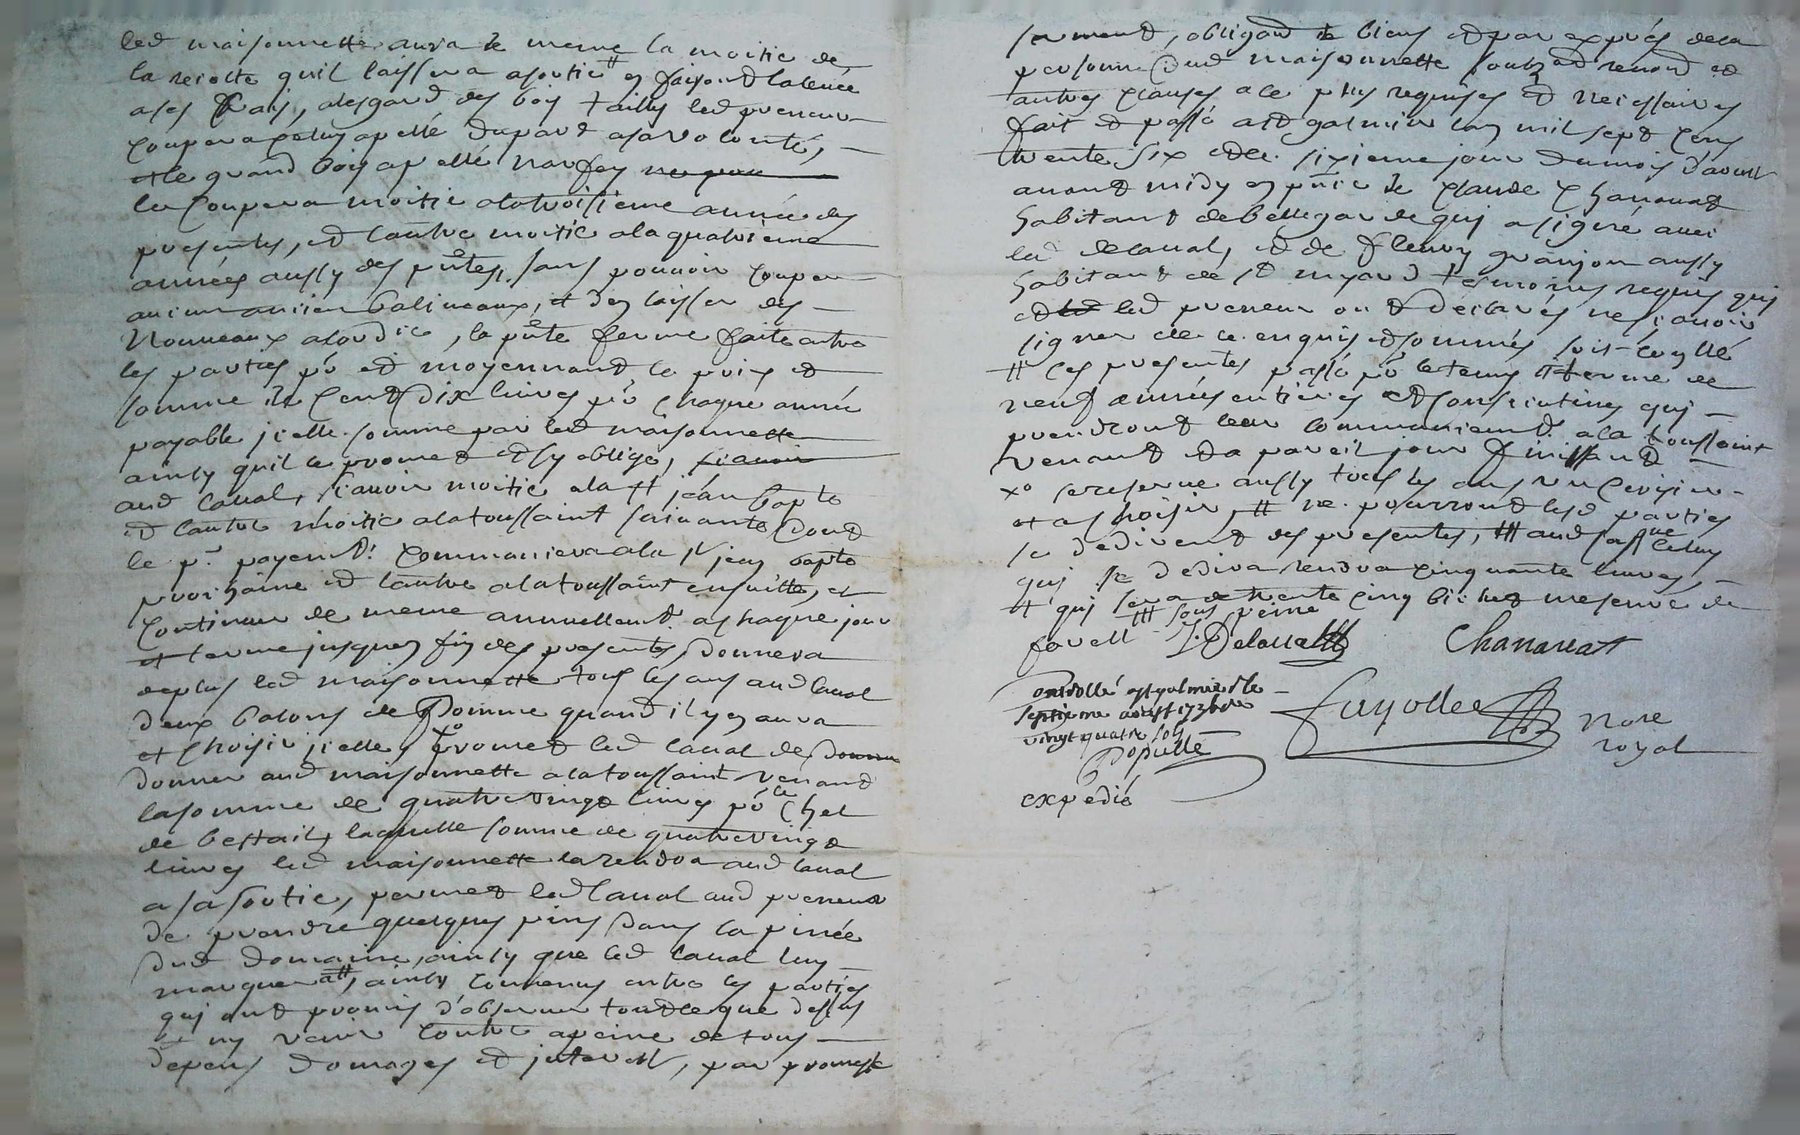 led maisonnette aura de meme la moitie de
la recolte quil laissera a sa sortie # en faisant la levée
a ses frais, alesgard des bois taillis led preneur
coupera celuy apellé dupard a sa volonté, —
et le grand bois apellé
les coupera moitie a la troisieme année des
presentes, et lautre moitie a la quatrieme
années aussy des pntes, sans pouvoir couper
aucun ancien baliveaux, et den laisser des —
nouveaux a lordre, la pnte ferme faite entre
les parties po et moyennant le prix et
somme de cent dix livres po chaque année
payable icelle somme par led maisonnette
ainsy quil le promet et sy oblige, scavoir
aud Laual, scavoir moitie a la st jean bapte
et lautre moitie a la toussaint suivante dont
le pr payemt commancera a la st jean bapte
prochaine et lautre a la toussaint ensuitte, et
continuer de meme annuellemt a chaque jour
et terme jusques fin des presentes, donnera
deplus led maisonnette tous les ans aud Laual
deux de pomme quand il y en aura
et choisir icelles xo promet led Laual de donner
donner aud maisonnette a la toussaint venant
la somme de quatrevingt livres po le chet
de bestail, laquelle somme de quatrevingt
livres led maisonnette la rendra aud Laual
a sa sortie, permet led Laual aud preneur
de prendre quelques pins dans la pinée
dud domaine, ainsy que led Laual luy
marquera ## ainsy convenus entre les parties
qui ont promis d'observer tout ce que dessus
et ny venir contre a peine de tous —
depens domages et interest, par promesse
serment, obligaon de biens et par exprés de sa
personne dud maisonnette soubz on renon et
autres clauses a ce plus requises et necessaires
fait et passé a st galmier lan mil sept cens
trente six et le sixieme jour du mois d'aoust
avant midy en pnce de Claude Chanauat
habitant de bellegarde qui a signé avec
led delaual, et de fleury granjon aussy
habitant de st mesard temoins requis qui
et led preneur ont declarés ne scavoir
signer de ce enquis et sommés soit
# ces presentes passé po le tems et terme de
neuf années entieres et consecutives qui —
prendront leur commancemt a la toussaint
venant et a pareil jour finissant —
xo se reserve aussy tous les ans un cerisier
et a choisir, # ne pourront lesd parties
se dedirent des presentes, ### au cas que celuy
qui se dedira rendra cinquante livres, —
# qui sera de trente cinq bichet mesure de
forest ### sous peine
J. Delaual Chanauat
controllé a st galmier le
septieme aoust 1736 reçu
vingt quatre sols
Popullé
Fayolle nore
royal
expedié